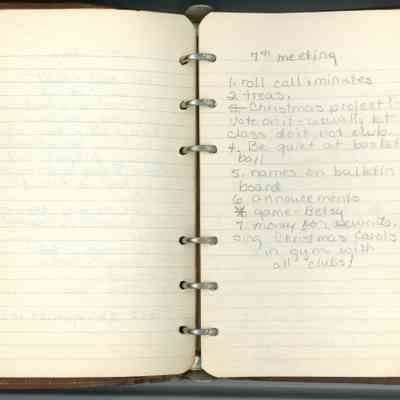 7th meeting
1. roll call & minutes
2. treas.
3. Christmas project?
Vote on it - usually let
class do it, not club.
4. Be quiet at basket
ball
5. names on bulletin
board
6. annoucements
game - Betsy
7. money for
Sing Christmas Carols
in gym with
all clubs!